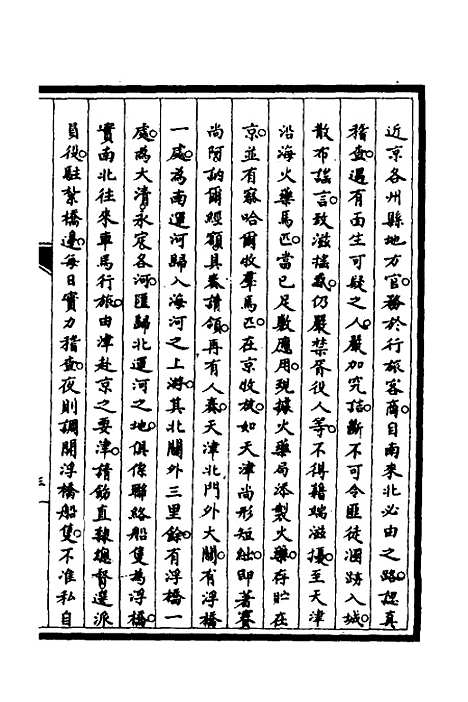 近京各州縣地方官務於行旅客商自南來北必由之路認真
稽查遇有面生可疑之人嚴加究詰斷不可令匪徒溷跡入城
散布謠言致滋搖惑仍嚴禁胥役人等不得藉端滋擾至天津
沿海火藥馬匹當已足數應用現據火藥局添製火藥存貯在
京並有察哈爾牧羣馬匹在京收放如天津尚形短絀即著賽
尚阿訥爾經額具奏請領再有人奏天津北門外大關有浮橋
一處為南運河歸入海河之上游其北關外三里餘有浮橋一
處為大清永定各河匯歸北運河之地俱係聯絡船隻為浮橋
實南北往來車馬行旅由津赴京之要津請飭直隸總督選派
員役駐紮橋邊每日實力稽查夜則調開浮橋船隻不准私自
三